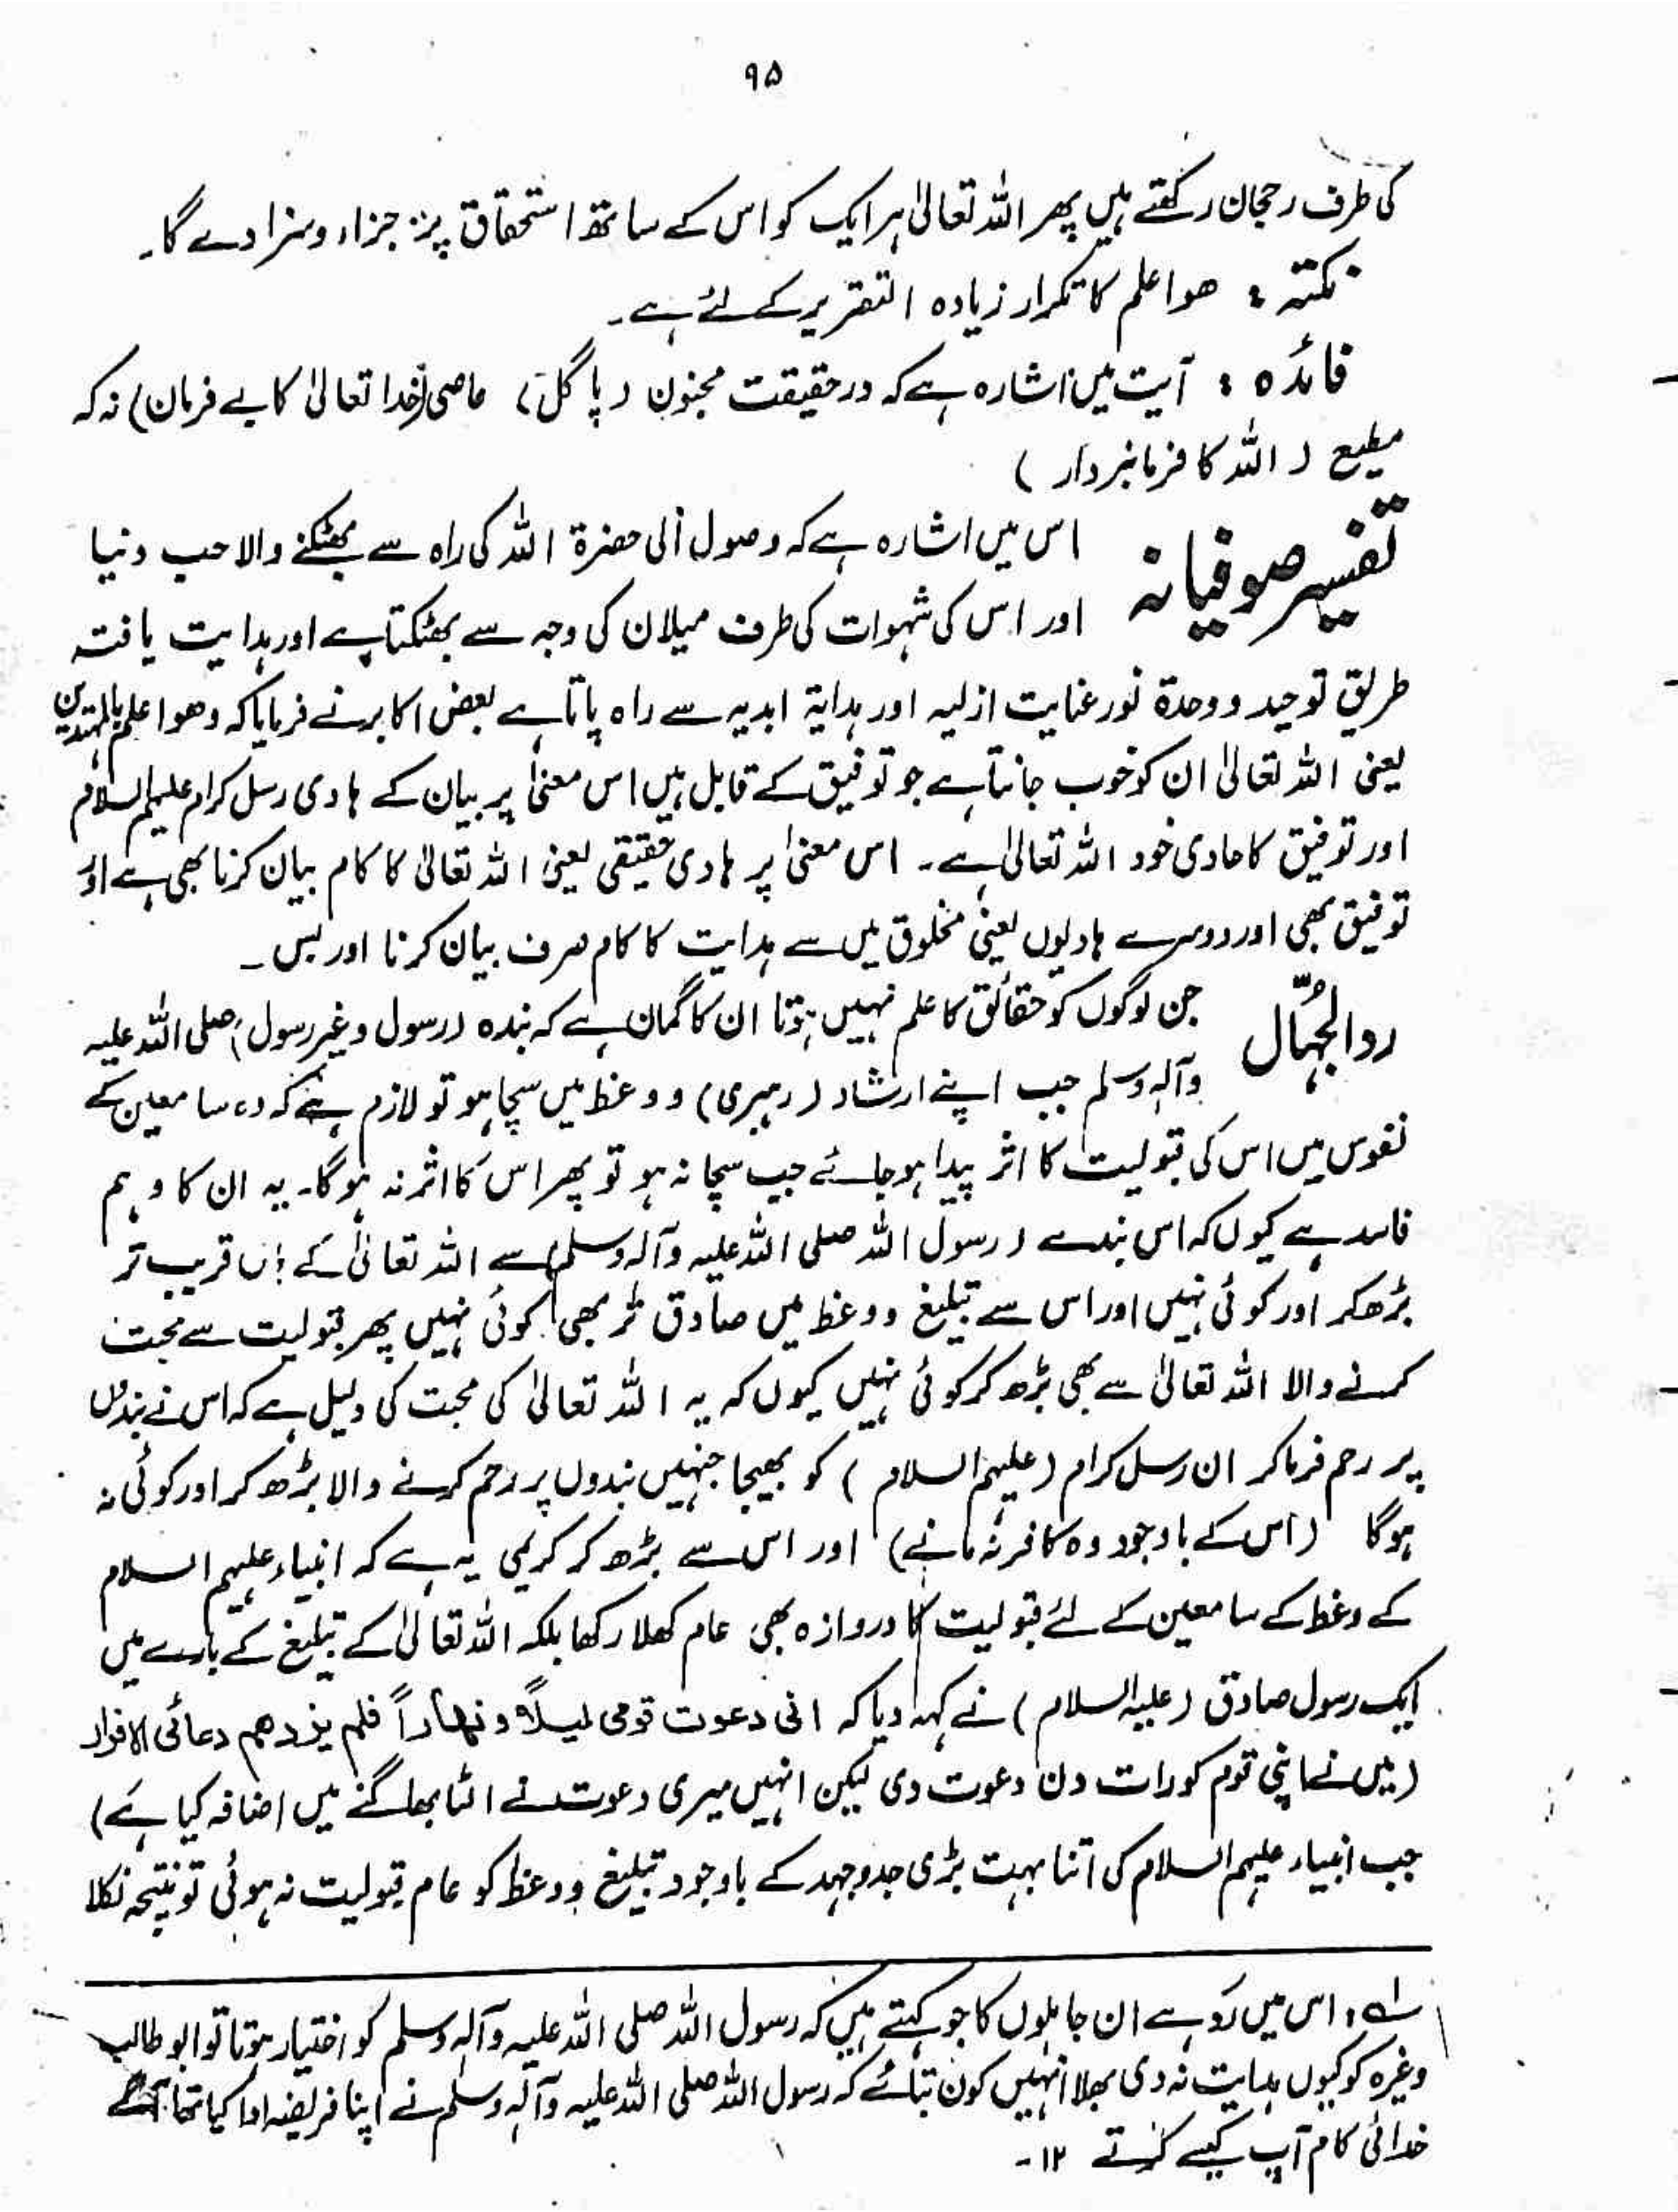 ۹۵
کی طرف رجحان رکھتے ہیں پھر اللہ تعالیٰ ہر ایک کو اس کے ساتھ استحقاق پر جزاء و سزا دے گا۔
نکتہ : ھوا علم کا تکرار زیادہ التقریر کے لئے ہے۔
فائدہ : آیت میں اشارہ ہے کہ درحقیقت مجنون (پاگل) عاصی (خدا تعالیٰ کا بے فرمان) نہ کہ
مطیع (اللہ کا فرمانبردار)
تفسیر صوفیانہ اس میں اشارہ ہے کہ وصول الی حضرۃ اللہ کی راہ سے بھٹکنے والا حب دنیا
اور اس کی شہوات کی طرف میلان کی وجہ سے بھٹکتا ہے اور ہدایت یافتہ
طریق توحید و وحدۃ نور عنایت ازلیہ اور ہدایۃ ابدیہ سے راہ پاتا ہے بعض اکابر نے فرمایا کہ وھوا علم بالمہتدین
یعنی اللہ تعالیٰ ان کو خوب جانتا ہے جو توفیق کے قابل ہیں اس معنیٰ پر بیان کے ہادی رسل کرام علیہم السلام
اور توفیق کا ھادی خود اللہ تعالیٰ ہے۔ اس معنیٰ پر ہادی حقیقی یعنی اللہ تعالیٰ کا کام بیان کرنا بھی ہے اور
توفیق بھی اور دوسرے ہادیوں یعنی مخلوق میں سے ہدایت کا کام صرف بیان کرنا اور بس۔
رد الجُہّال جن لوگوں کو حقائق کا علم نہیں ہوتا ان کا گمان ہے کہ بندہ (رسول و غیر رسول) صلی اللہ علیہ
وآلہ وسلم جب اپنے ارشاد (رہبری) و وعظ میں سچا ہو تو لازم ہے کہ وہ سامعین کے
نفوس میں اس کی قبولیت کا اثر پیدا ہو جائے جب سچا نہ ہو تو پھر اس کا اثر نہ ہوگا۔ یہ ان کا وہم
فاسد ہے کیوں کہ اس بندے (رسول اللہ صلی اللہ علیہ وآلہ وسلم) سے اللہ تعالیٰ کے ہاں قریب تر
بڑھکر اور کوئی نہیں اور اس سے تبلیغ و وعظ میں صادق تر بھی کوئی نہیں پھر قبولیت سے محبت
کرنے والا اللہ تعالیٰ سے بھی بڑھ کر کوئی نہیں کیوں کہ یہ اللہ تعالیٰ کی محبت کی دلیل ہے کہ اس نے بندوں
پر رحم فرما کر ان رسل کرام (علیہم السلام) کو بھیجا جنہیں بندوں پر رحم کرنے والا بڑھ کر اور کوئی نہ
ہوگا (اس کے باوجود وہ کافر نہ مانے) اور اس سے بڑھ کر کریمی یہ ہے کہ انبیاء علیہم السلام
کے وعظ کے سامعین کے لئے قبولیت کا دروازہ بھی عام کھلا رکھا بلکہ اللہ تعالیٰ کے تبلیغ کے بارے میں
ایک رسول صادق (علیہ السلام) نے کہہ دیا کہ انی دعوت قومی لیلاً و نہاراً فلم یزدھم دعائی الا فرار
(میں نے اپنی قوم کو رات دن دعوت دی لیکن انہیں میری دعوت نے الٹا بھاگنے میں اضافہ کیا ہے)
جب انبیاء علیہم السلام کی اتنا بہت بڑی جدوجہد کے باوجود تبلیغ و وعظ کو عام قبولیت نہ ہوئی تو نتیجہ نکلا
لہ : اس میں رَد ہے ان جاہلوں کا جو کہتے ہیں کہ رسول اللہ صلی اللہ علیہ وآلہ وسلم کو اختیار ہوتا تو ابو طالب
وغیرہ کو کیوں ہدایت نہ دی بھلا انہیں کون بتائے کہ رسول اللہ صلی اللہ علیہ وآلہ وسلم نے اپنا فریضہ ادا کیا تھا آگے
خدائی کام آپ کیسے کرتے ۱۲۔